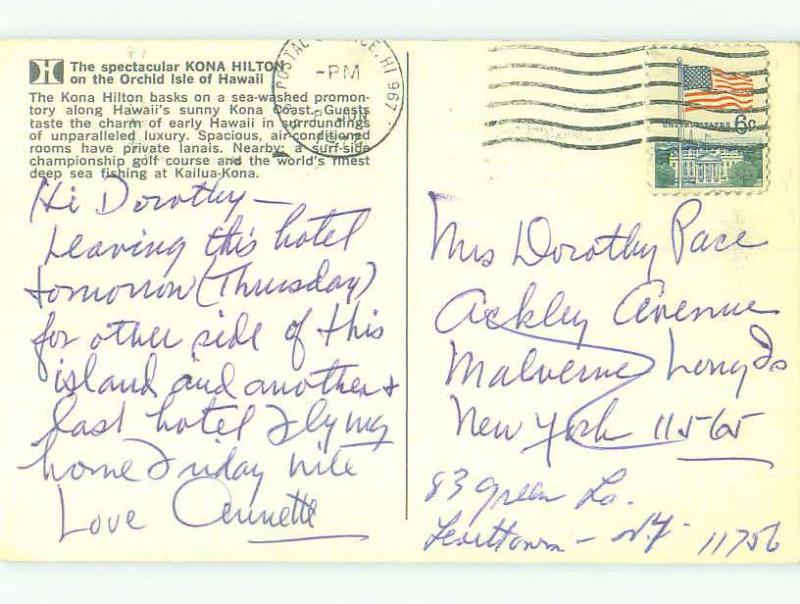 The spectacular KONA HILTON
on the Orchid Isle of Hawaii
The Kona Hilton basks on a sea-washed promon-
tory along Hawaii's sunny Kona Coast. Guests
taste the charm of early Hawaii in surroundings
of unparalleled luxury. Spacious, air-conditioned
rooms have private lanais. Nearby: a surf-side
championship golf course and the world's finest
deep sea fishing at Kailua-Kona.
POSTAL SERVICE, HI 967
-PM
UNITED STATES 6c
Hi Dorothy —
Leaving this hotel
tomorrow (Thursday)
for other side of this
island and another +
last hotel flying
home Friday nite
Love Annette
Mrs Dorothy Pace
Ackley Avenue
Malverne Long Is
New York 11565
83 Green La.
Levittown - N.Y. 11756